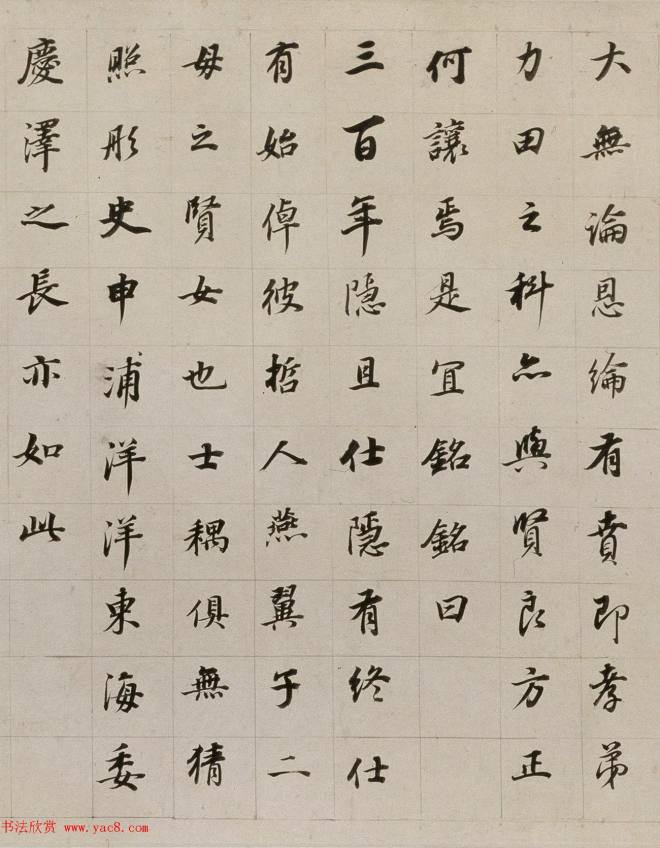 大無論恩綸有賁即孝弟
力田之科亦與賢良方正
何讓焉是宜銘銘曰
三百年隱且仕隱有終仕
有始倬彼哲人燕翼子二
母之賢女也士耦俱無猜
照彤史申浦洋洋東海委
慶澤之長亦如此
书法欣赏 www.yac8.com